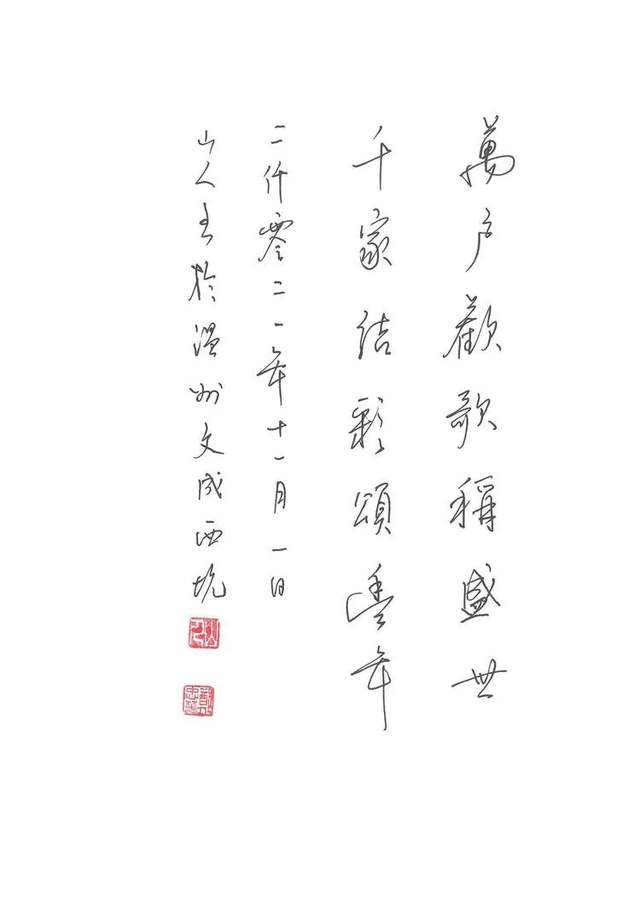 萬户歡歌稱盛世
千家结彩頌豊年
二仟零二一年十一月一日
山人書於温州文成西坑